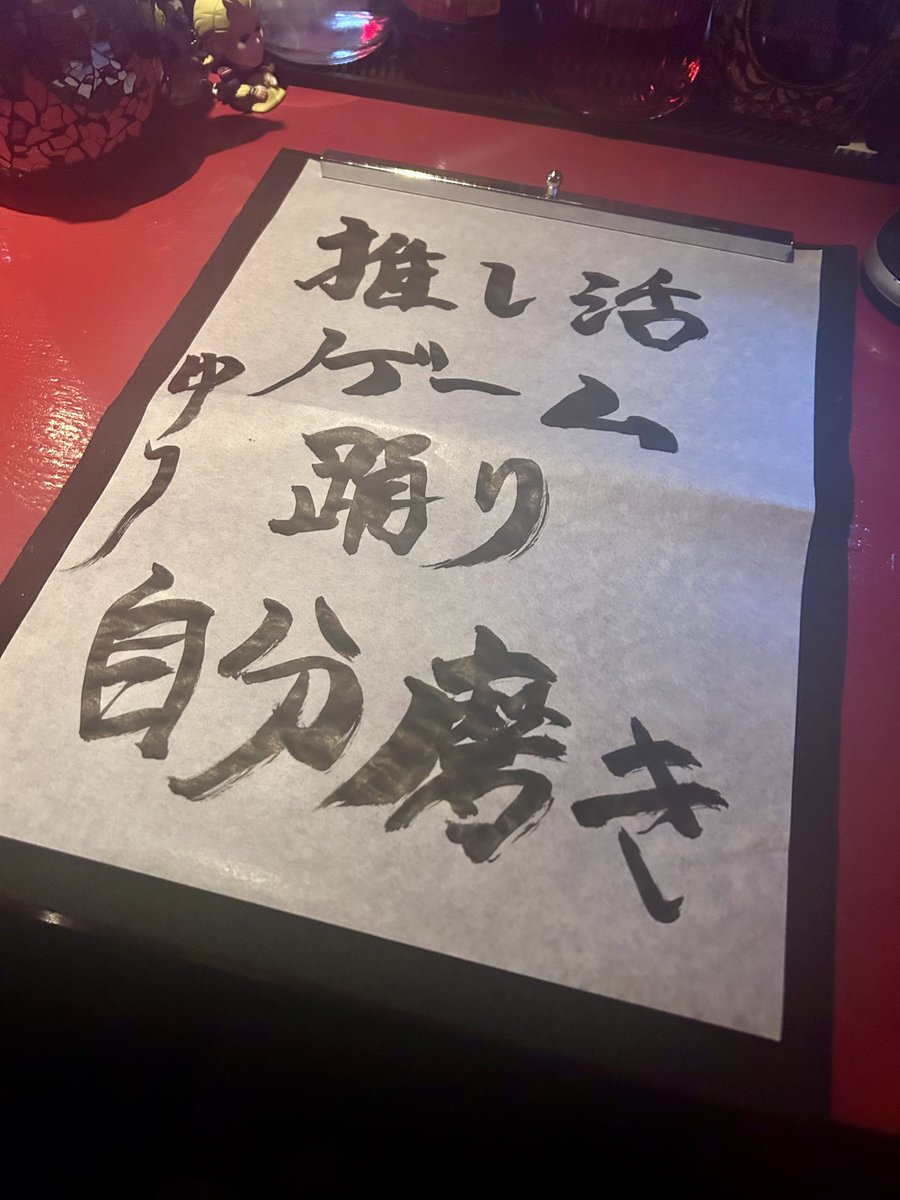 推し活
ゲーム
踊り
自分磨き
ゆう